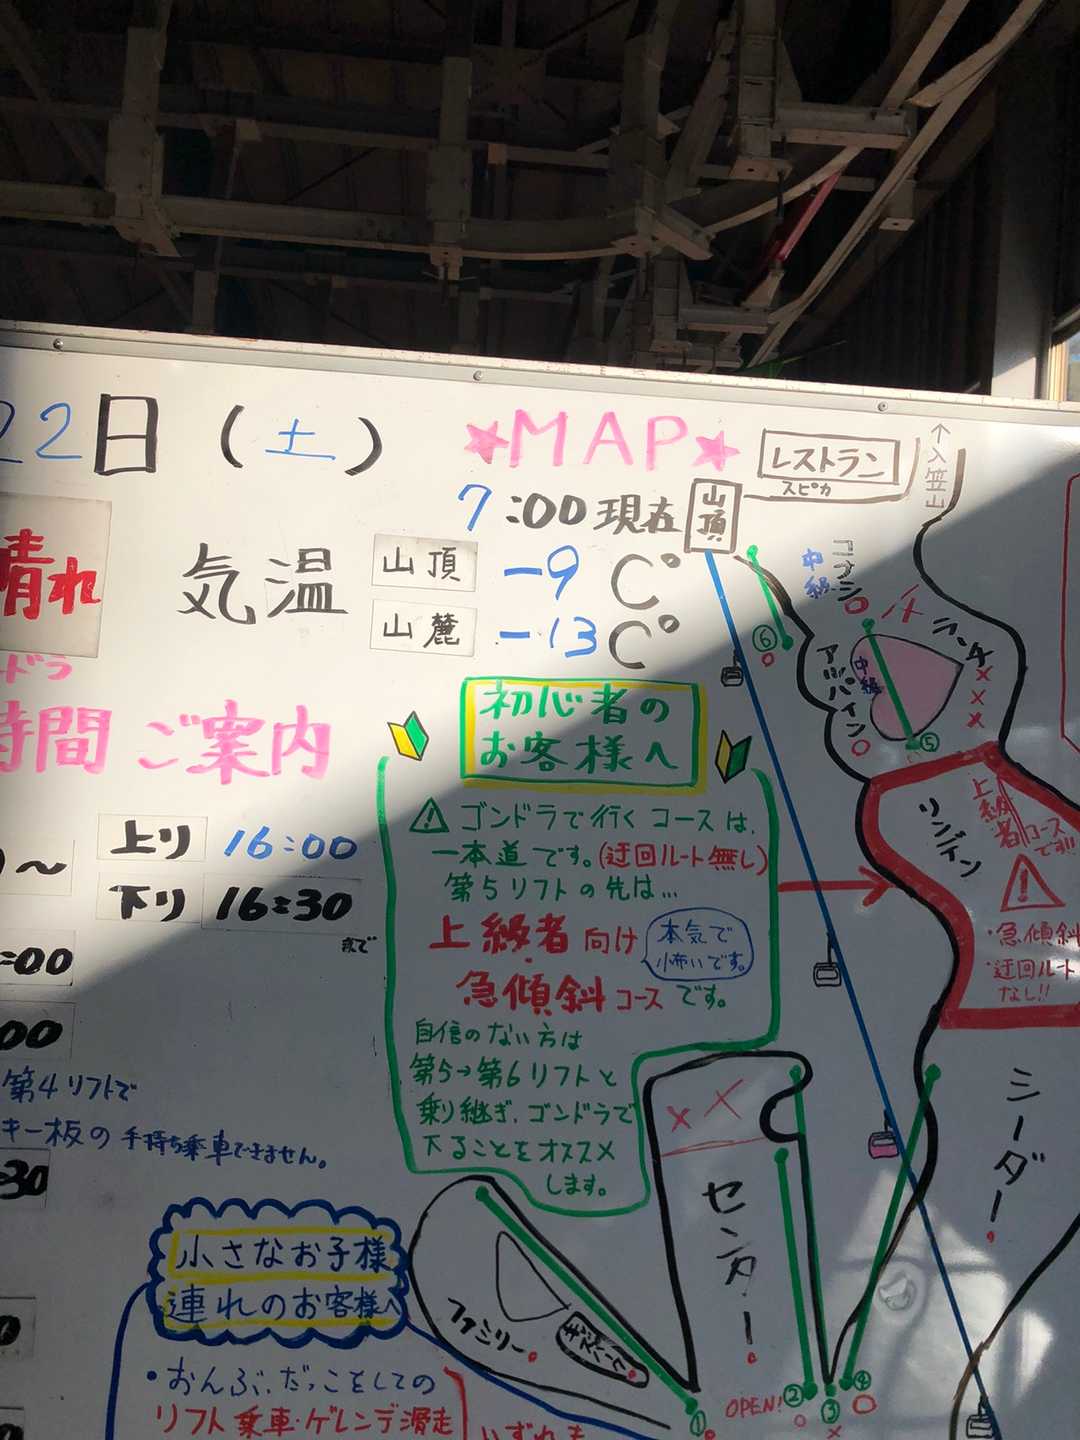 22日(土)
晴れ
ドラ
時間 ご案内
気温
7:00 現在
山頂 -9 C°
山麓 -13 C°
上り 16:00
下り 16:30
まで
~
:00
00
第4リフトで
キー板の 手持ち乗車できません。
30
初心者の
お客様へ
⚠ ゴンドラで行く コースは、
一本道です。(迂回ルート無し)
第5リフトの先は…
上級者 向け
本気で
怖いです。
急傾斜 コースです。
自信のない方は
第5→第6リフトと
乗り継ぎ、ゴンドラで
下ることをオススメ
します。
小さなお子様
連れのお客様へ
・おんぶ、だっこをしての
リフト乗車・ゲレンデ滑走
いずれも
★MAP★
レストラン
スピカ
山頂
↑入笠山
コナシ
中級
⑥
アッパイン
中級
⑤
ランチ
×××
リンデン
上級者
コースです!!
・急傾斜
・迂回ルート
なし!!
シーダー
センター
ファミリー
OPEN!
①
②
③
④